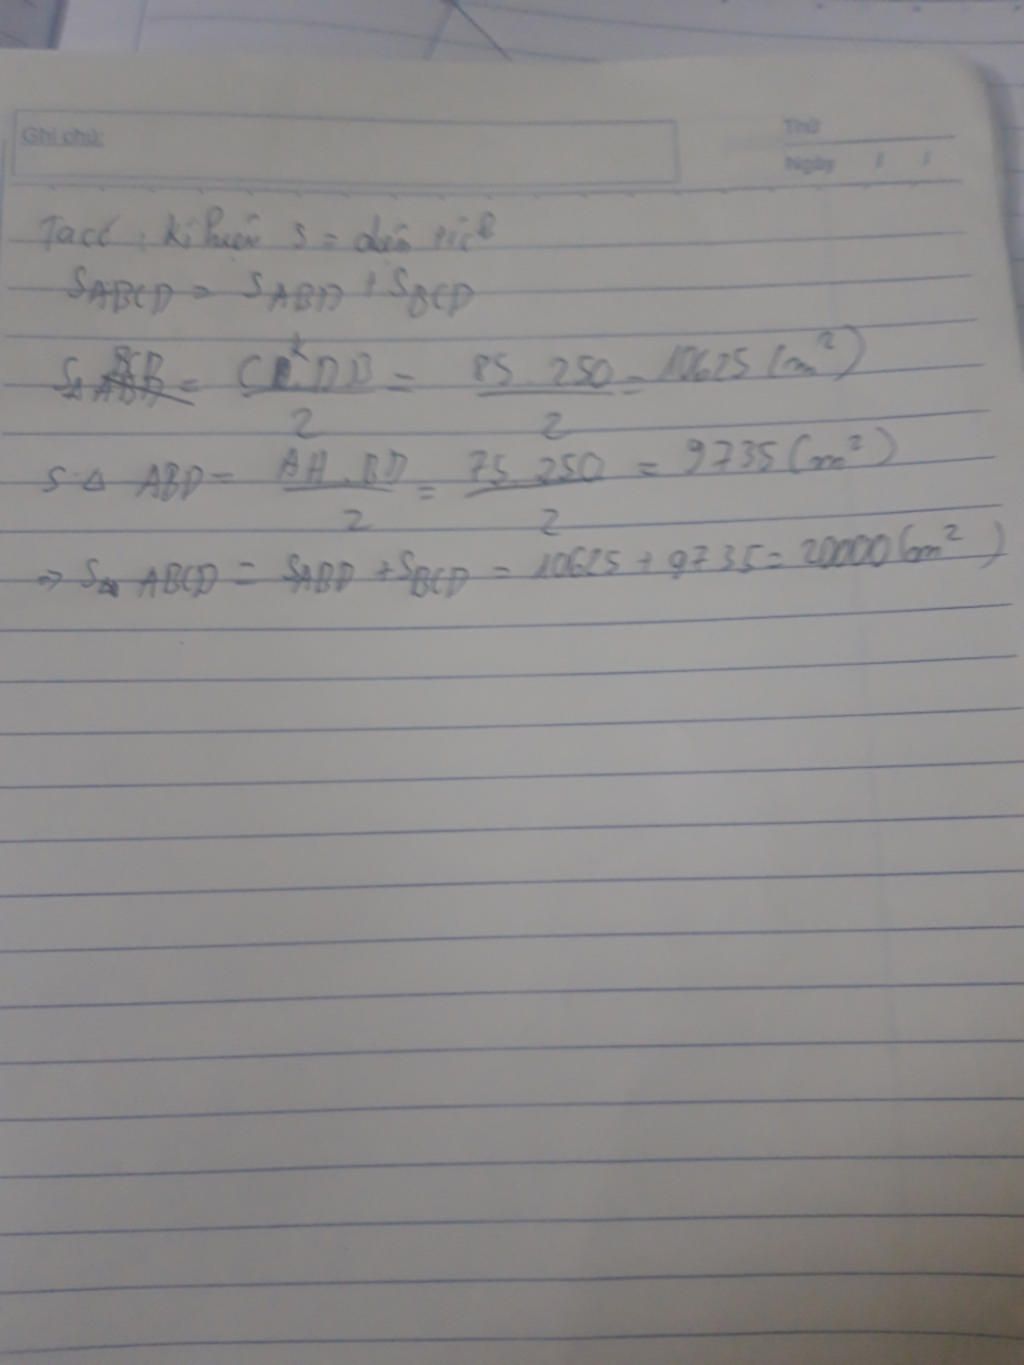 Ghi chú:
Thứ
Ngày / /
Ta có : kí hiệu S = diện tích
S_ABCD = S_ABD + S_BCD
S_Δ BCD = CK.DB / 2 = 85.250 / 2 = 10625 (m²)
S Δ ABD = AH.BD / 2 = 75.250 / 2 = 9735 (m²)
⇒ S ABCD = S_ABD + S_BCD = 10625 + 9735 = 20000 (m²)